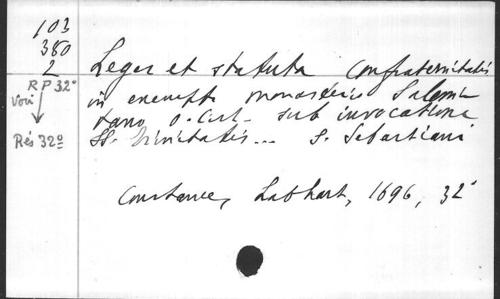 103
380
2
RP 32º
voir
Rés 32º
Leges et statuta Confraternitatis
in exempto monasterio Salemi-
tano O. Cist. sub invocatione
SS. Trinitatis... S. Sebastiani
Constance, Labhart, 1696, 32º